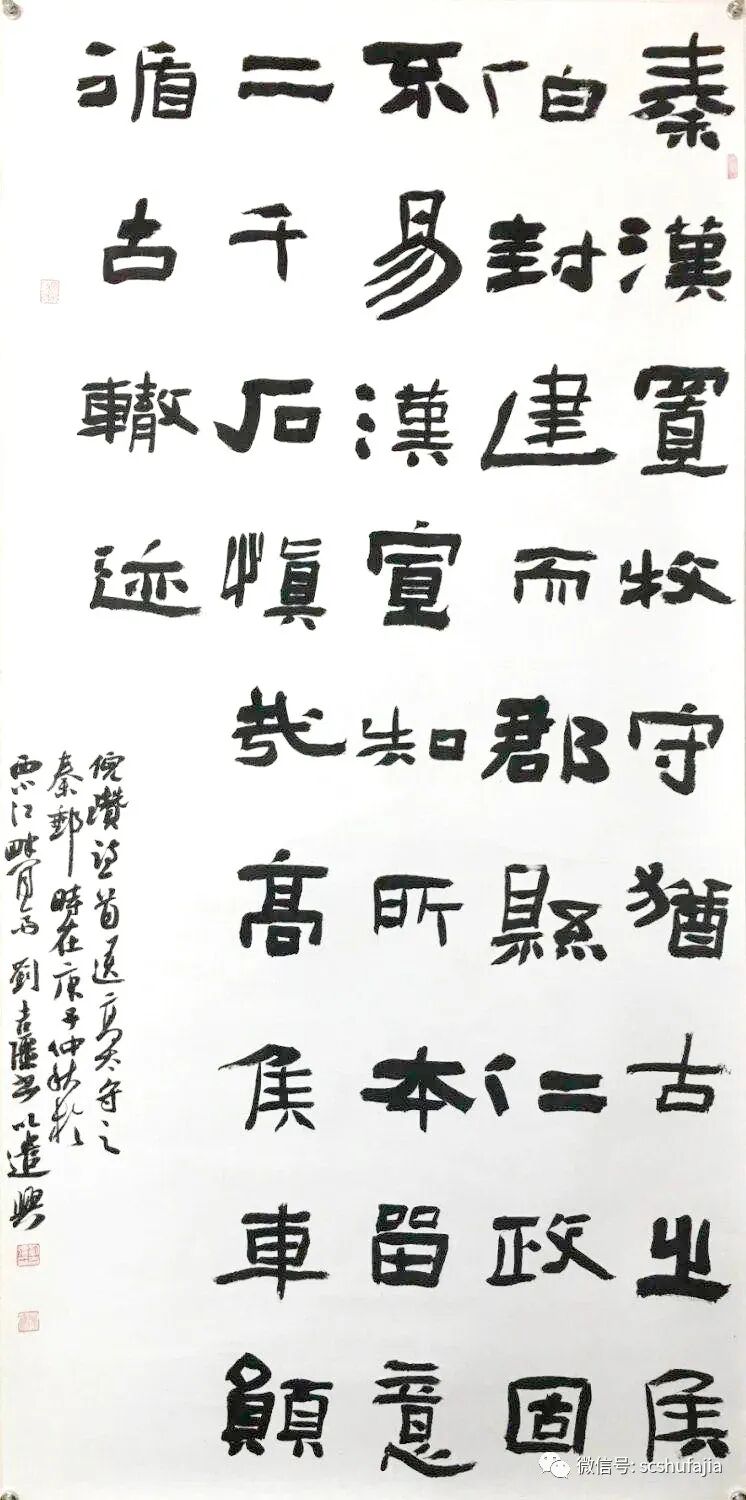 秦漢置牧守猶古之矦
伯封建而郡縣仁政固
不易漢宣知所本留意
二千石慎哉高矦車願
循古轍迹
倪瓚詩首送高太守之
秦郵時在庚子仲秋於
西江畔劉吉隆書以遣興
微信号: scshufajia